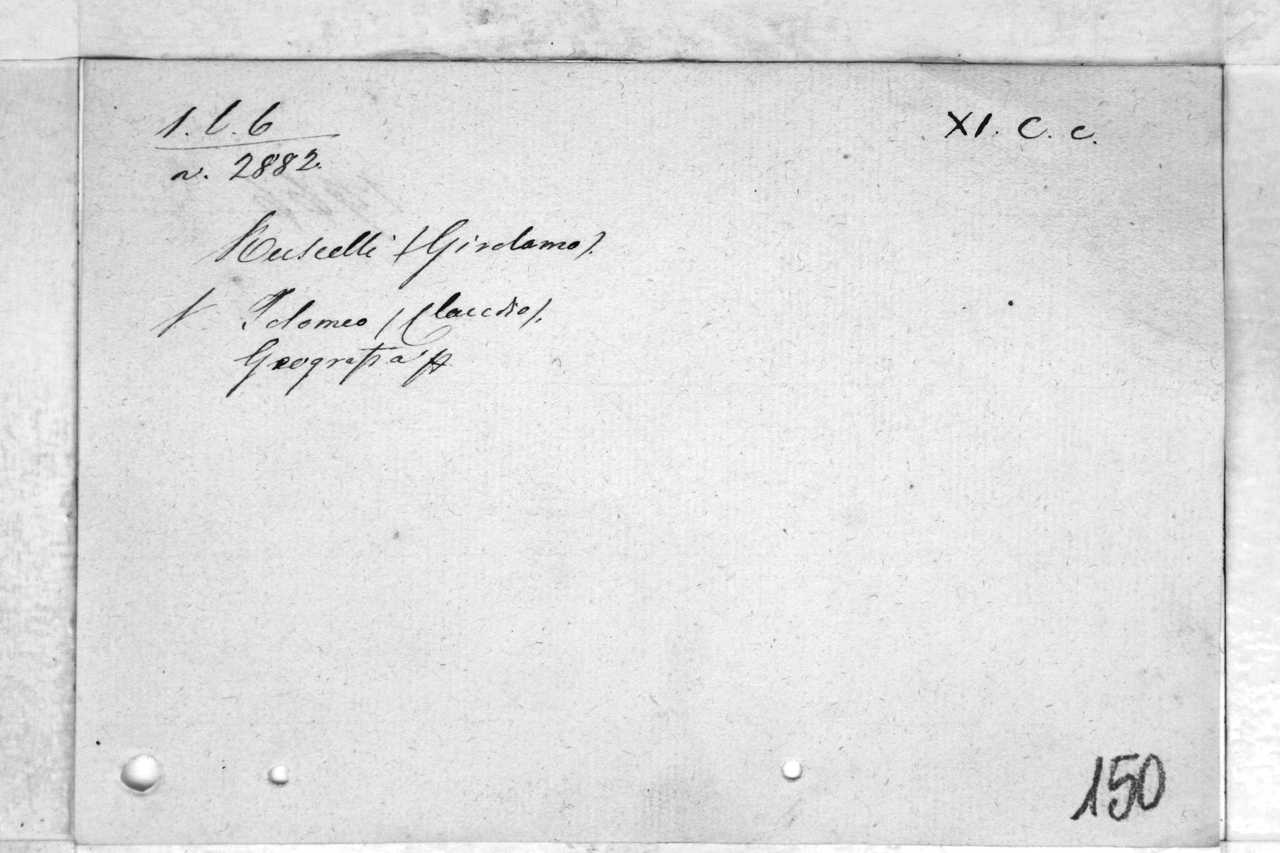 1. l. 6
XI. C. c.
n. 2882.
Ruscelli (Girolamo).
Tolomeo (Claudio).
Geografia
150